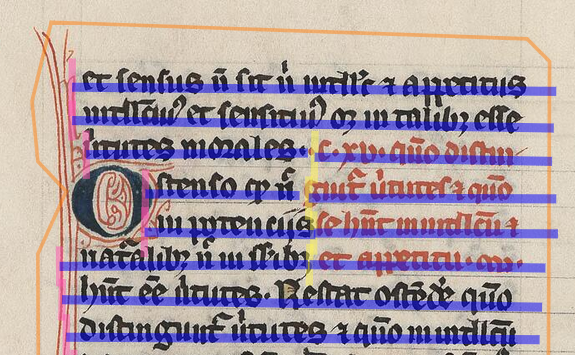 et sensus n̄ sit ī intllc̄ ⁊ appetitus
intllcūꝰ et sensitiuꝰ oꝫ in talibꝫ esse
ūtutes morales. c. xv. quō distin
Ostenso qꝫ n̄ guūt ūtutes ⁊ quo
in potencijs se hn̄t in intllcū ⁊
nat̄alibꝫ n̄ in ss̄ibꝫ et appetitu.
hn̄t ēē ūtutes. Restat ostēdē quō
distingunt̄ ūtutes ⁊ quō in intllcū